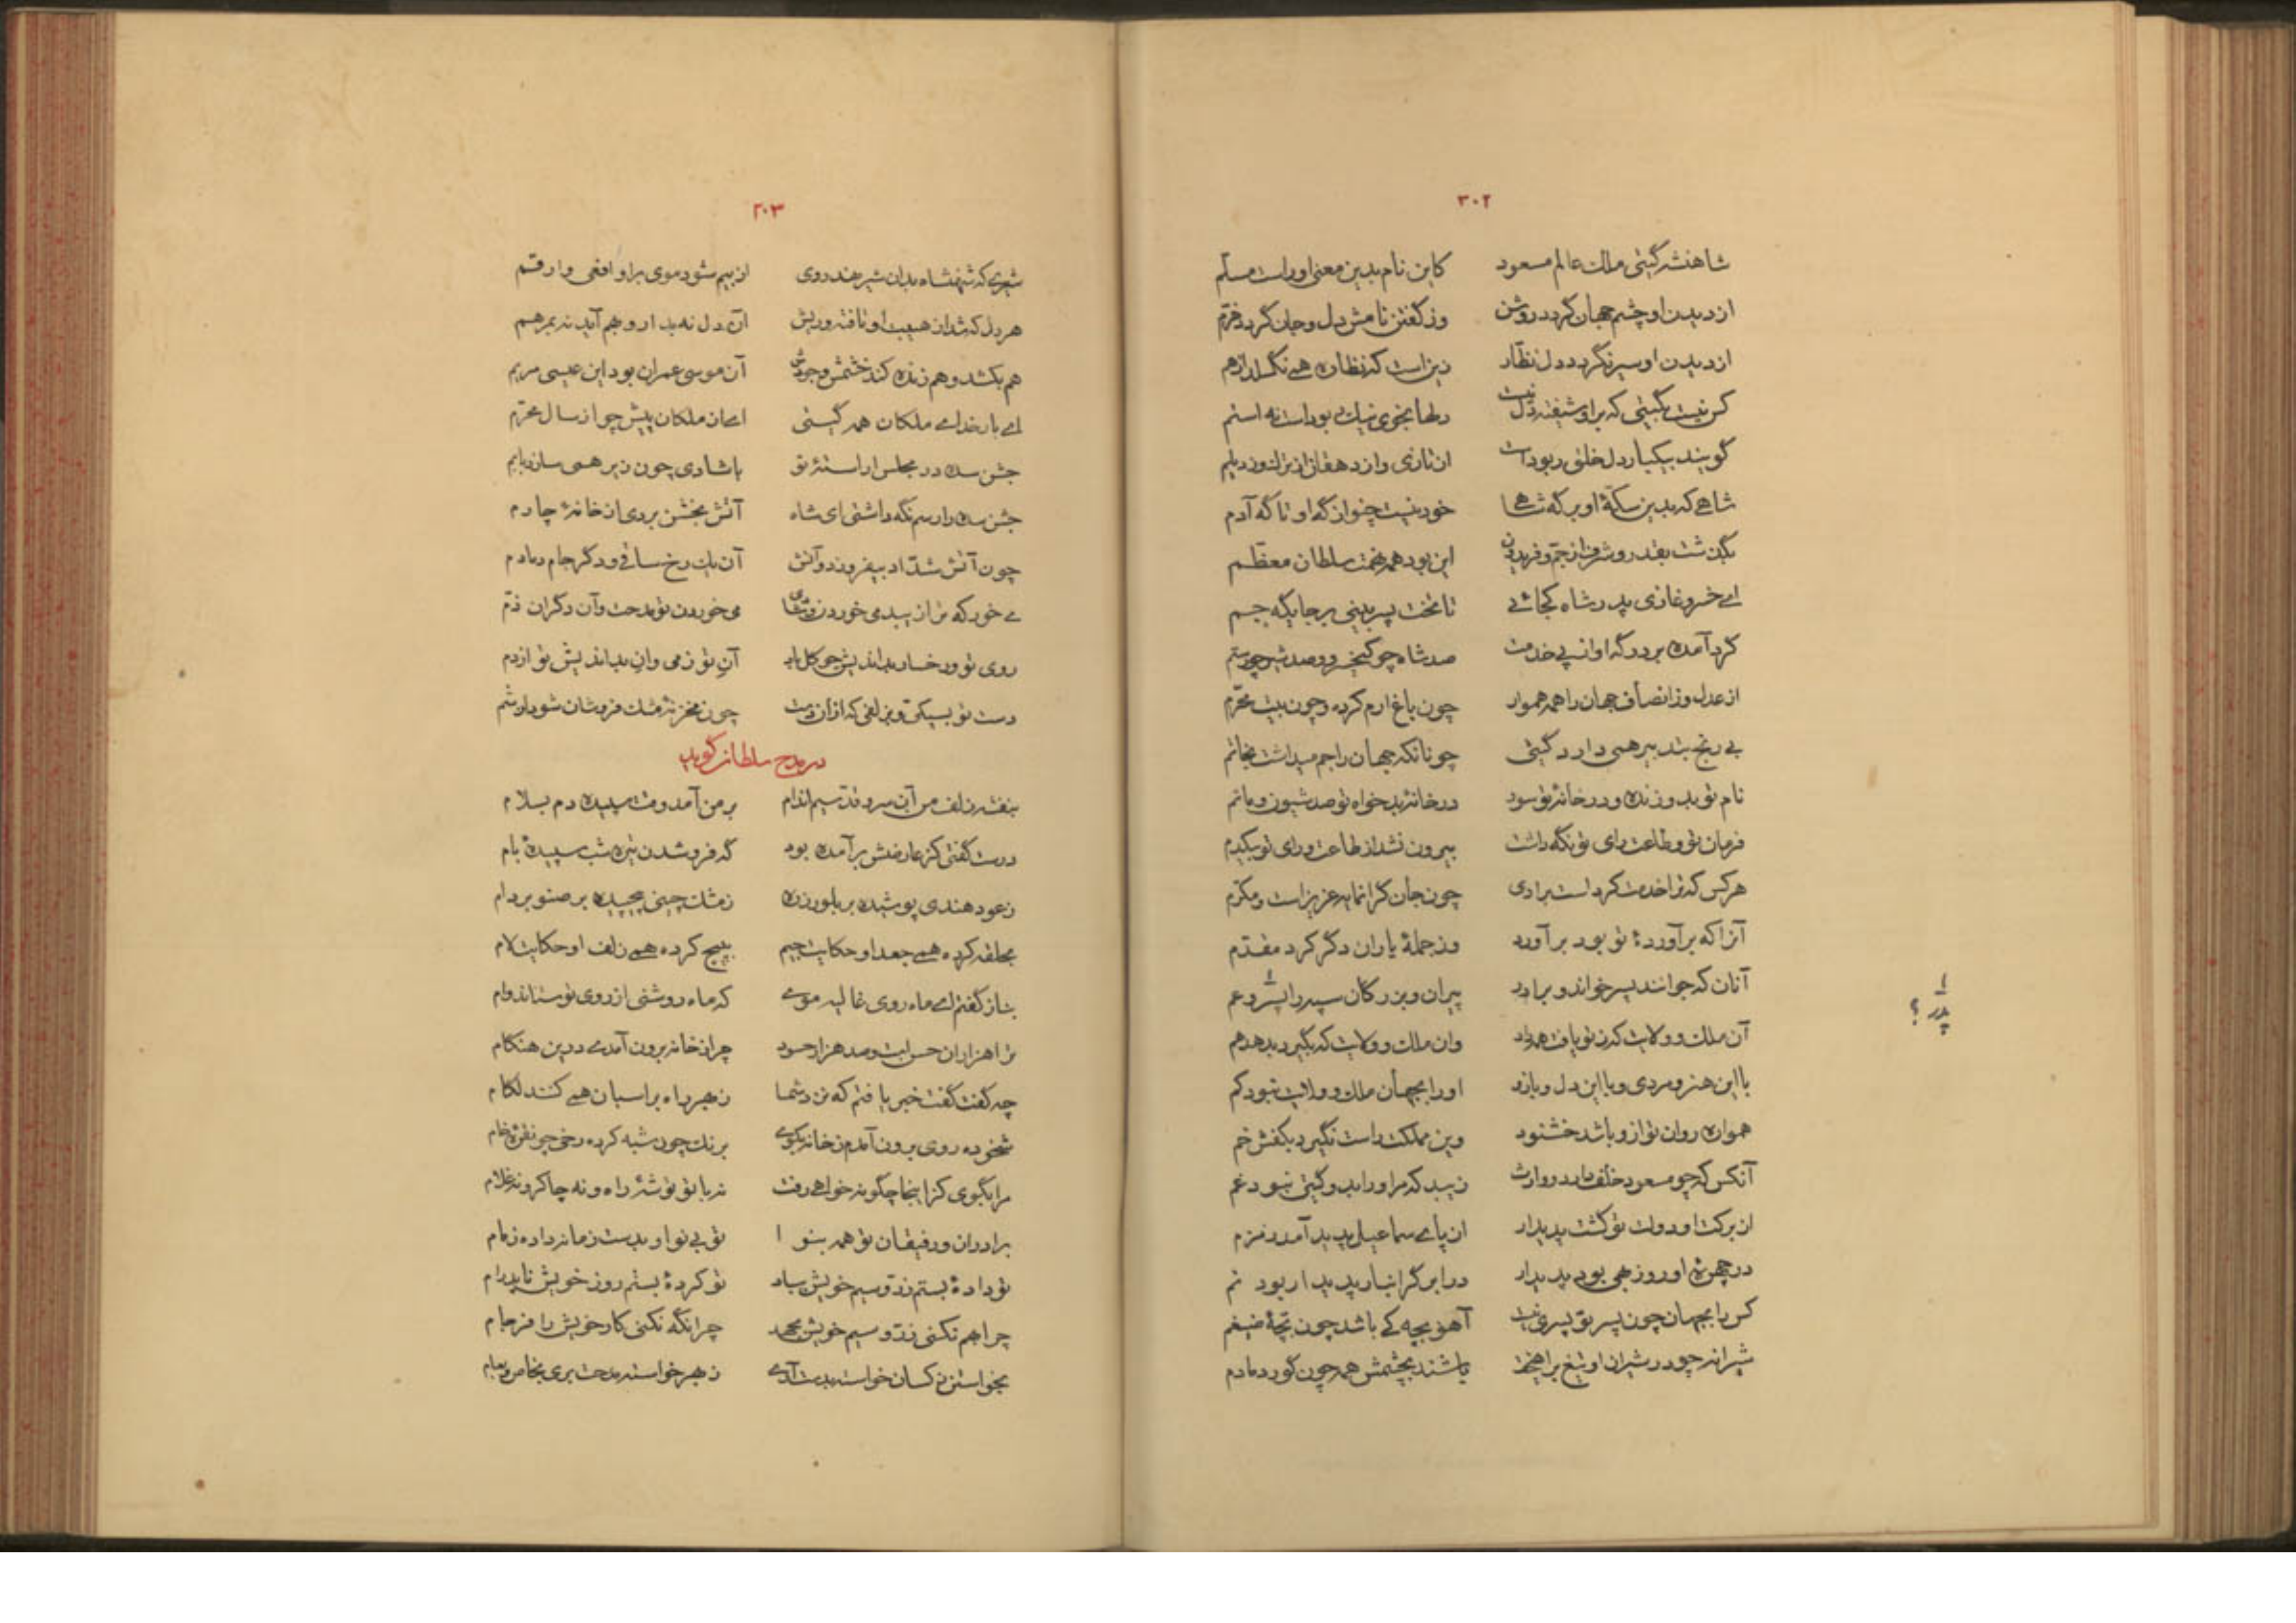 ۳۰۲
شاهنشه گیتی ملك عالم مسعود کاین نام بدین معنی اوراست مسلّم
از دیدن او چشم جهان گردد روشن وز گفتن نامش دل و جان گردد خرّم
از دیدن او سیر نگردد دل نظّار زین است که نظاره همے نگسلد از هم
کس نیست بگیتی که براو شیفته دل نیست دلها بخوی نیك ربوداست نه استم
گویند بیکبار دل خلق ربوداست از تازی و از دهقان از ترك و ز دیلم
شاهے که بدین سکّهٔ او بر گه شاهے خود نیست چنو از گه او تا گه آدم
بگذشت بقدر و شرف از جمّ و فریدون این بود همه همّت سلطان معظّم
اے خسرو غازی پدر شاه کجائے تا تخت پسر بینی بر جایگه جم
گرد آمده بر درگه او از پے خدمت صد شاه چو کیخسرو و صد شیر چو رستم
از عدل و ز انصاف جهان را همه هموار چون باغ ارم کرده و چون بیت محرّم
بے رنج بتدبیر همی دارد گیتی چونانکه جهان را جم میداشت بخاتم
نام تو بدو زنده و در خانهٔ تو سور در خانهٔ بدخواه تو صد شیون و ماتم
فرمان تو و طاعت رای تو نگه داشت بیرون نشد از طاعت و رای تو بیکدم
هر کس که ترا خدمت کرد است بر رادی چون جان گرانمایه عزیز است و مکرّم
آنرا که برآوردهٔ تو بود برآورد وز جملهٔ یاران دگر کرد مقدّم
آنان که جوانند پسر خواند و برادر پیران و بزرگان سپه را پسر و عم
آن ملك و ولایت که ز تو یافت همه داد وان ملك و ولایت که بگیرد بدهد هم
با این هنر و مردی و با این دل و بازو او را بجهان ملك و ولایت نبود کم
همواره روان تو ازو باشد خشنود وین مملکت راست نگیرد بکفش خم
آنکس که چو مسعود خلف دارد و وارث زیبد که مر او را بدو گیتی نبود غم
از برکت او دولت تو گشت پدیدار از پاے سماعیل پدید آمد زمزم
در چهرهٔ او روز بهی بود پدیدار در ابر گرانبار پدیدار بود نم
کس را بجهان چون پسر تو پسری نیست آهو بچه کے باشد چون بچّهٔ ضیغم
شیرانه چو در شیران او تیغ برآهیخت باشند بچشمش همه چون گور دمادم
پدر ؟
۳۰۳
شیری که شهنشاه بدان شیر نهد روی از بیم شود موی براو افعی و ارقم
هر دل که شد از هیبت او تافته و ریش آن دل نه بدارو بهم آید نه بمرهم
هم بکشد و هم زنده کند خشمش و جودش آن موسی عمران بود این عیسی مریم
اے بار خداے ملکان همه گیتی اے از ملکان پیش چو از سال محرّم
جشن سده در مجلس آراستهٔ تو با شادی چون زیر همی سازد بابم
جشن سده را رسم نگه داشتی ای شاه آتش بخشن بردی از خانهٔ چارم
چون آتش شدّاد بیفروز دو آتش آن یك رخ ساقی و دگر جام دمادم
مے خور که ترا زیبد می خوردن و شادی می خوردن تو مدحت وآن دگران ذم
روی تو و رخسار بداندیش چو گل باد آنِ تو ز می وانِ بداندیش تو از دم
دست تو بسیکی و بزلفی که از آن دست چون مخزنهٔ مشك فروشان شود از شم
در مدح سلطان گوید
بنفشه زلف من آن سرو قد سیم اندام بر من آمد وقت سپیده دم بسلام
درست گفتی کز عارضش برآمده بود گه فرو شدن تیره شب سپیدهٔ بام
ز عود هندی پوشیده بر بلور زره ز مشك چینی پیچیده بر صنوبر دام
بحلقه کرده همے جعد او حکایت جیم بپیچ کرده همے زلف او حکایت لام
بناز گفتم اے ماه روی غالیه موے که ماه روشنی از روی تو ستاند وام
ترا هزاران حسن است و صد هزار حسود چرا ز خانه برون آمدے درین هنگام
چه گفت گفت خبر یافتم که نزد شما ز بهر راه بر اسبان همے کنند لگام
شخوده روی برون آمدم ز خانه بکوے برنك چون شبه کرده رخی چو نقرهٔ خام
مرا بگوی کز اینجا چگونه خواهے رفت نه با تو توشهٔ راه و نه چاکر و نه غلام
برادران و رفیقان تو همه بنوا تو بی نوا و بدست زمانه داده زمام
تو دادهٔ بستم زرّ و سیم خویش بباد تو کردهٔ بستم روز خویش نا پدرام
چرا بهم نکنی زرّ و سیم خویش بجهد چرا نگه نکنی کار خویش را فرجام
بخواستن ز کسان خواسته بدست آرے ز بهر خواسته مدحت بری بخاص و بعام